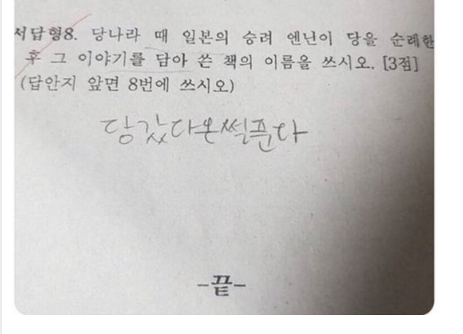 서답형8. 당나라 때 일본의 승려 엔닌이 당을 순례한
후 그 이야기를 담아 쓴 책의 이름을 쓰시오. [3점]
(답안지 앞면 8번에 쓰시오)
당갔다온썰푼다
-끝-